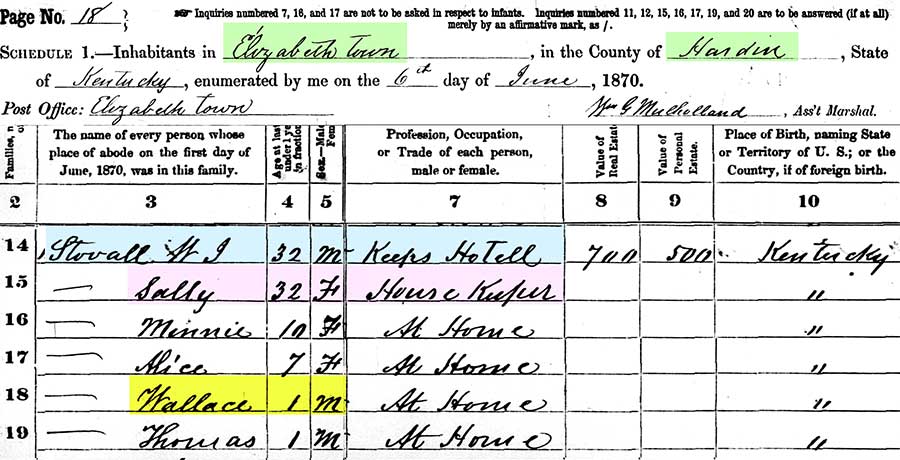 Page No. 18 ; Inquiries numbered 7, 16, and 17 are not to be asked in respect to infants. Inquiries numbered 11, 12, 15, 16, 17, 19, and 20 are to be answered (if at all)
merely by an affirmative mark, as /.
SCHEDULE 1.—Inhabitants in Elizabeth Town, in the County of Hardin, State
of Kentucky, enumerated by me on the 6th day of June, 1870.
Post Office: Elizabeth Town Wm G Mulholland, Ass't Marshal.
Families, The name of every person whose place of abode on the first day of June, 1870, was in this family. Age at last under 1 in fraction Sex.—Male Fem Profession, Occupation, or Trade of each person, male or female. Value of Real Estate. Value of Personal Estate. Place of Birth, naming State or Territory of U. S.; or the Country, if of foreign birth.
2 3 4 5 7 8 9 10
14 Stovall W J 32 M Keeps Hotell 700 500 Kentucky
15 — Sally 32 F House Keeper "
16 — Minnie 10 F At Home "
17 — Alice 7 F At Home "
18 — Wallace 1 M At Home "
19 — Thomas 1 M At Home "